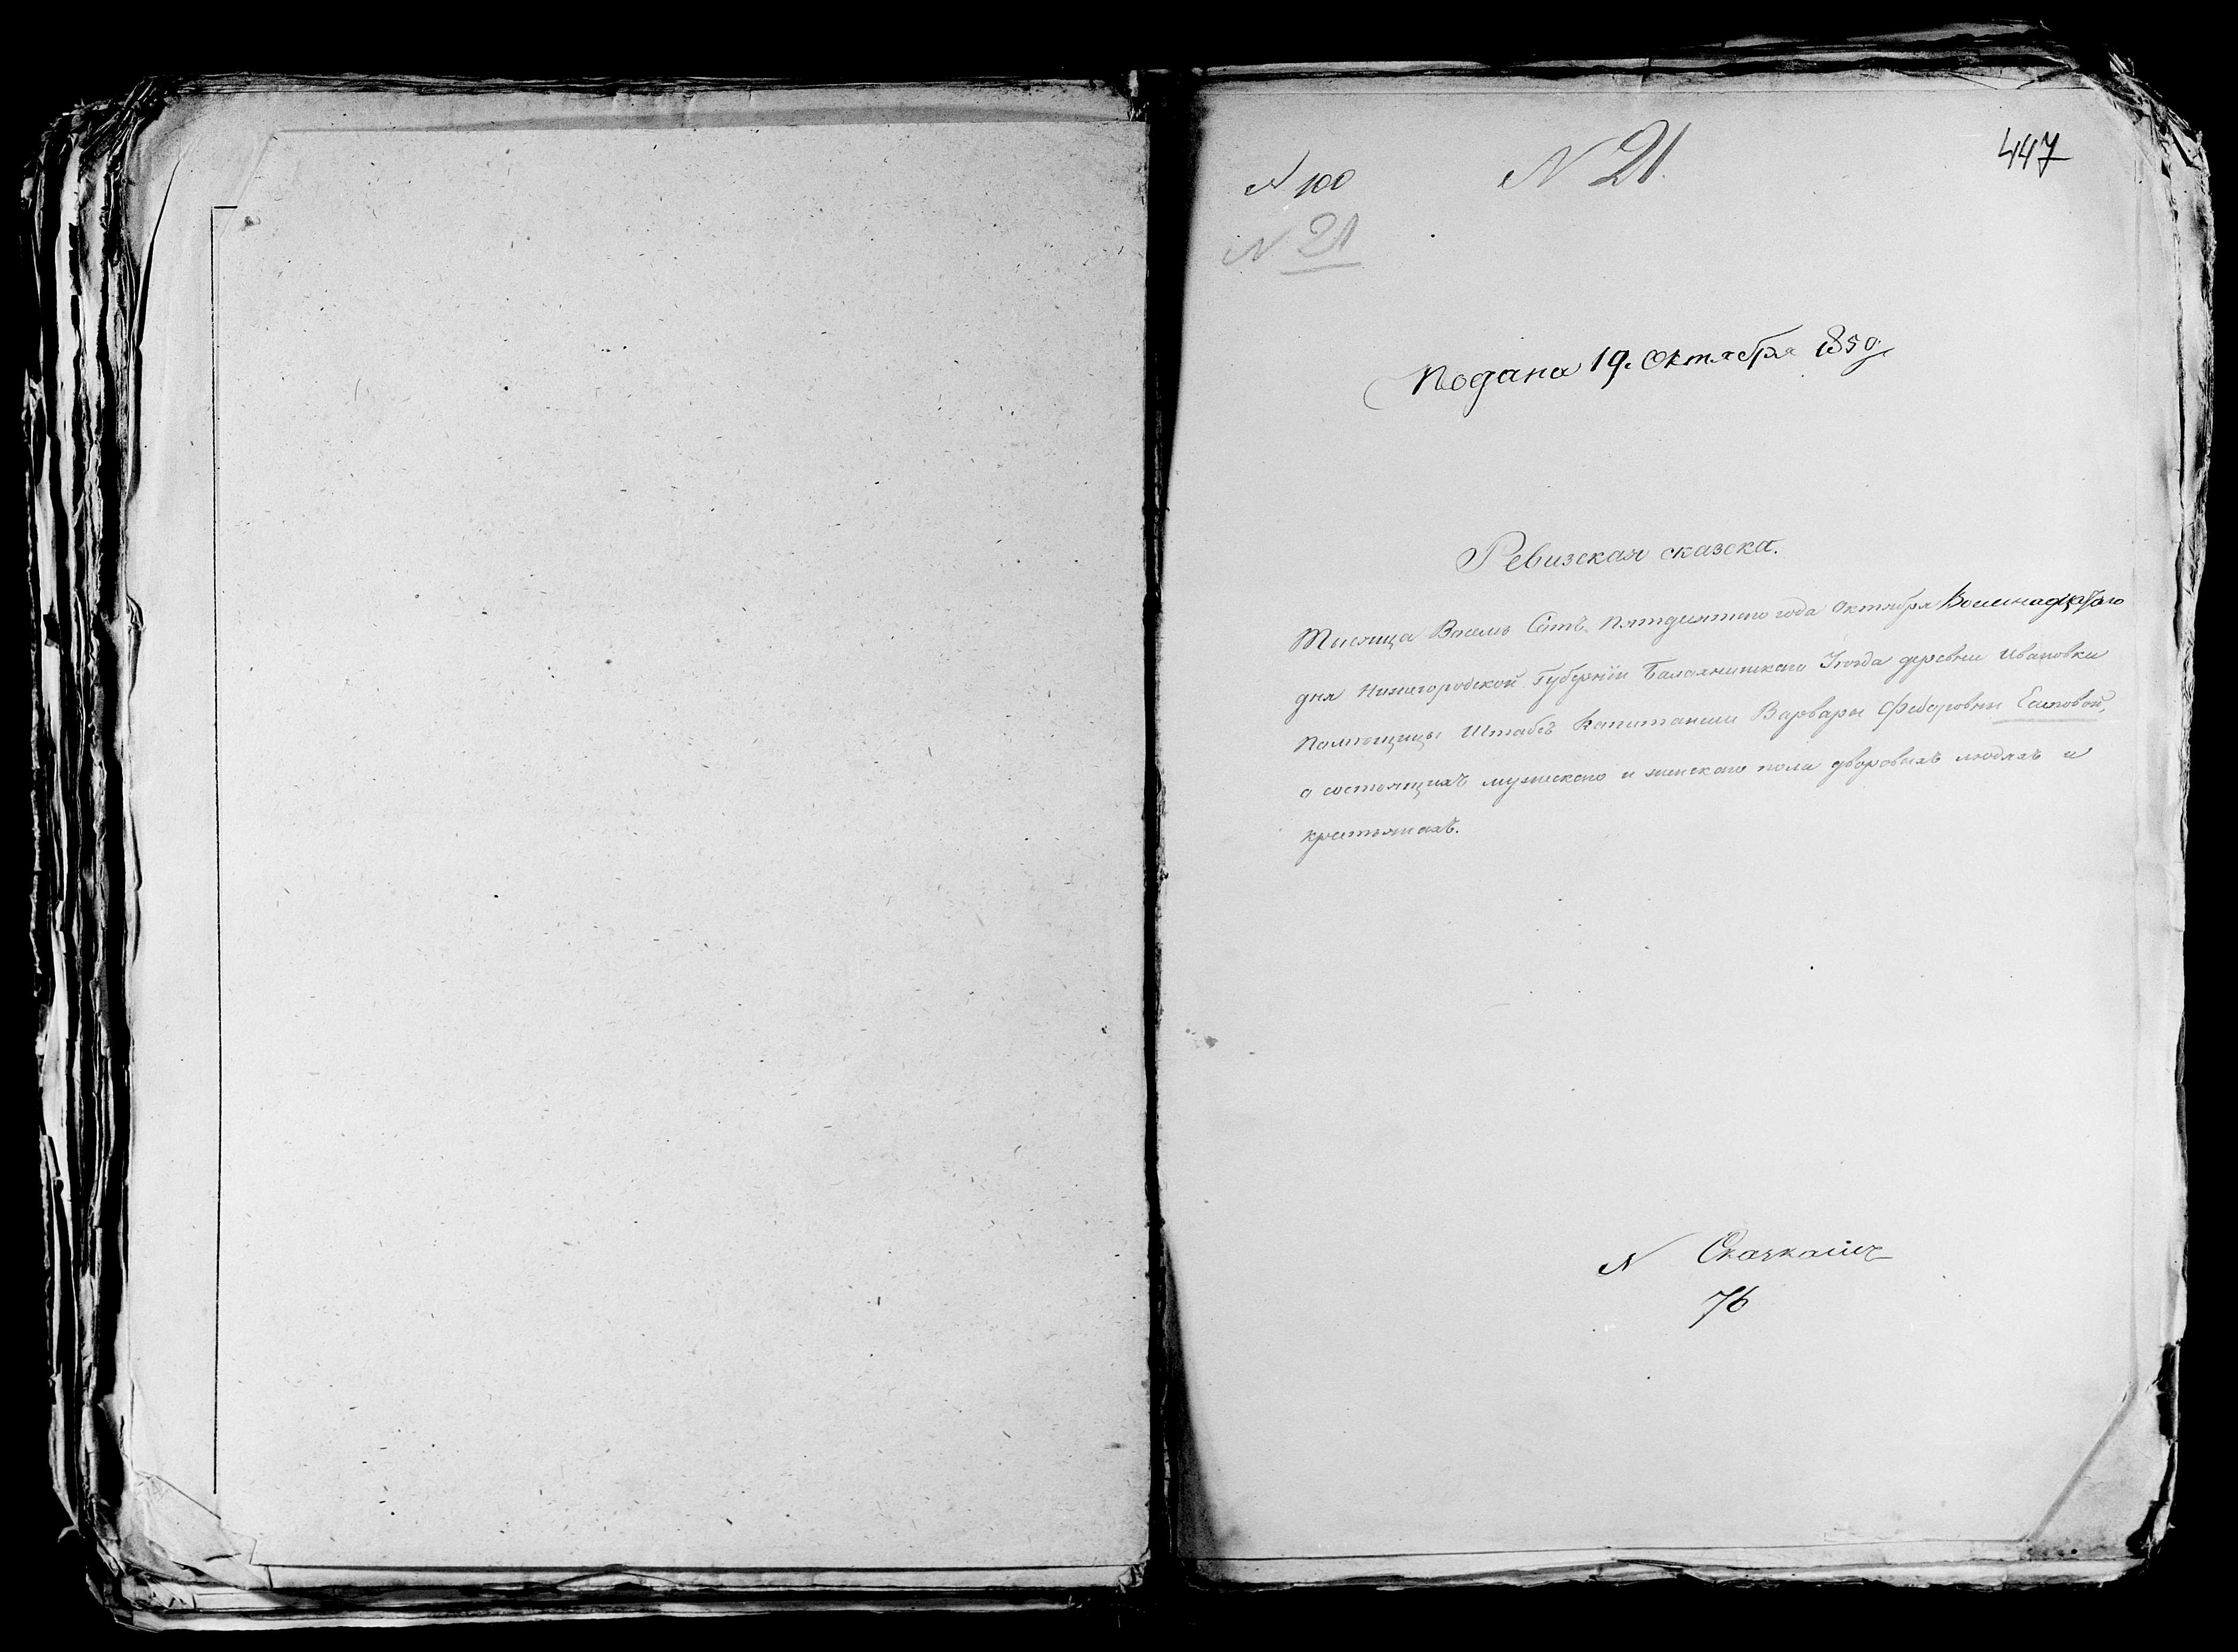 447
N 100
N 21.
N 21
Подана 19. Октября 1850
Ревизская сказка.
Тысяща Восемь Сотъ Пятдесятого года Октября Восмнадцатаго
дня Нижегородской Губерніи Балахнинскаго Уѣзда деревни Ивановки
Помѣщицы Штабсъ Капитанши Варвары Федоровны Есиповой,
о состоящихъ мужскаго и женскаго пола дворовыхъ людяхъ и
крестьянахъ.
N
76